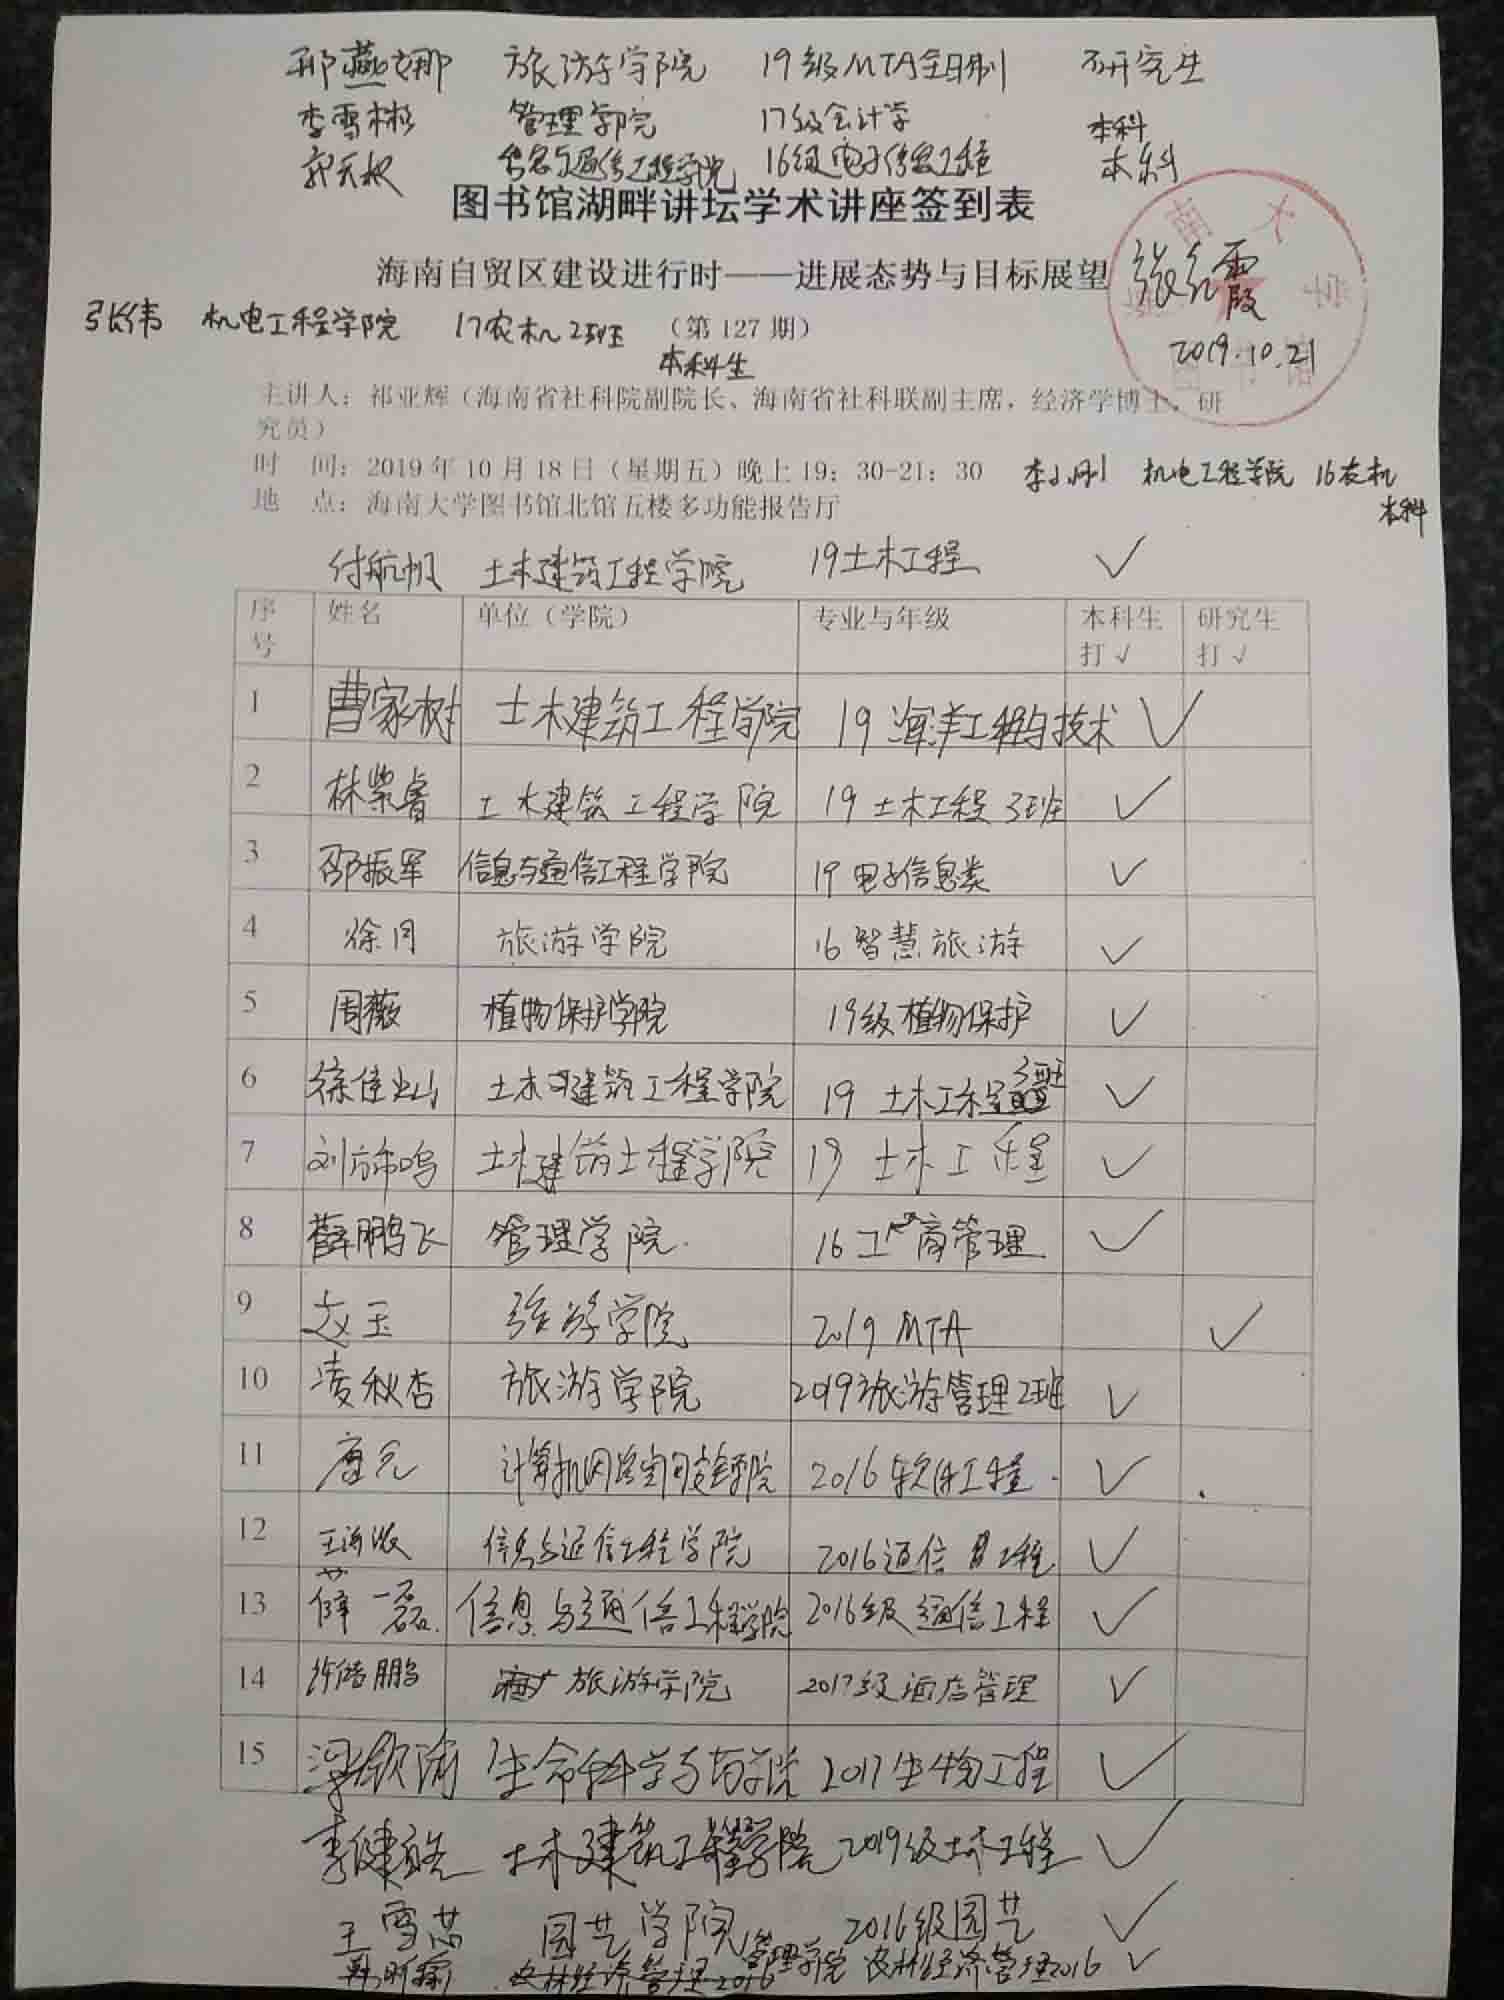 邢燕娜 旅游学院 19级MTA全日制 研究生
李雪彬 管理学院 17级会计学 本科
郭天权 信息与通信工程学院 16级电子信息工程 本科
图书馆湖畔讲坛学术讲座签到表
海南自贸区建设进行时——进展态势与目标展望
张红霞
2019.10.21
张伟 机电工程学院 17农机2班 （第 127 期）
本科生
主讲人：祁亚辉（海南省社科院副院长、海南省社科联副主席，经济学博士，研
究员）
时 间：2019 年 10 月 18 日（星期五）晚上 19：30-21：30 李小刚 机电工程学院 16农机
本科
地 点：海南大学图书馆北馆五楼多功能报告厅
付航帆 土木建筑工程学院 19土木工程 ✓
序号 姓名 单位（学院） 专业与年级 本科生打√ 研究生打√
1 曹家树 土木建筑工程学院 19 海洋工程与技术 ✓
2 林紫睿 土木建筑工程学院 19 土木工程 3班 ✓
3 邵振军 信息与通信工程学院 19 电子信息类 ✓
4 徐月 旅游学院 16 智慧旅游 ✓
5 周薇 植物保护学院 19级植物保护 ✓
6 徐佳 土木建筑工程学院 19 土木工程3班 ✓
7 刘 土木建筑工程学院 19 土木工程 ✓
8 薛鹏飞 管理学院. 16 工商管理 ✓
9 赵玉 旅游学院 2019 MTA ✓
10 凌秋杏 旅游学院 2019旅游管理2班 ✓
11 唐元 计算机网络空间安全学院 2016 软件工程 . ✓
12 王 信息与通信工程学院 2016通信工程 ✓
13 薛一磊. 信息与通信工程学院 2016级 通信工程 ✓
14 许 鹏 旅游学院 2017级 酒店管理 ✓
15 梁钦 生命科学与药学院 2017生物工程 ✓
李健皓 土木建筑工程学院 2019级土木工程 ✓
王雪芯 园艺学院 2016级园艺 ✓
韩昕 农林经济管理2016 管理学院 农林经济管理2016 ✓